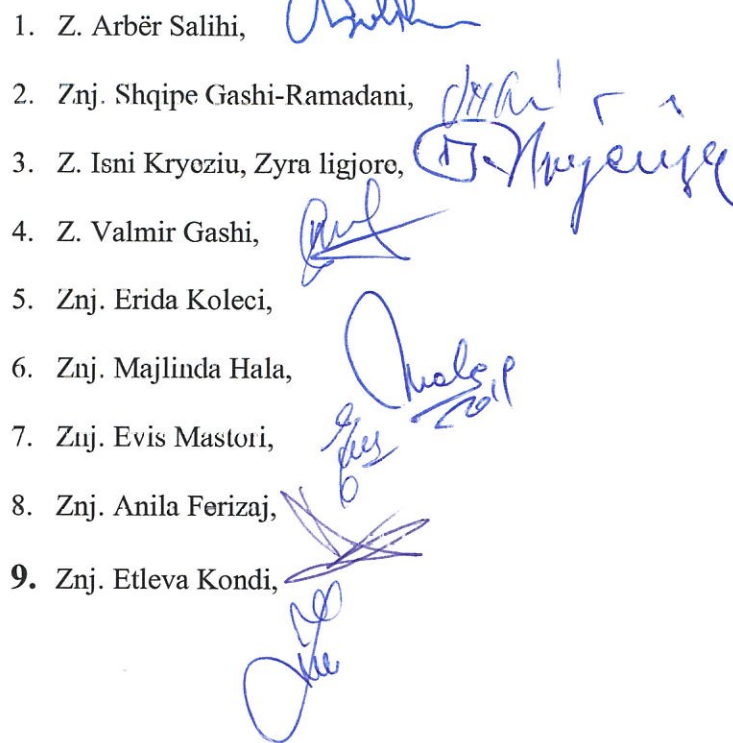 1. Z. Arbër Salihi,
2. Znj. Shqipe Gashi-Ramadani,
3. Z. Isni Kryeziu, Zyra ligjore,
4. Z. Valmir Gashi,
5. Znj. Erida Koleci,
6. Znj. Majlinda Hala,
7. Znj. Evis Mastori,
8. Znj. Anila Ferizaj,
9. Znj. Etleva Kondi,